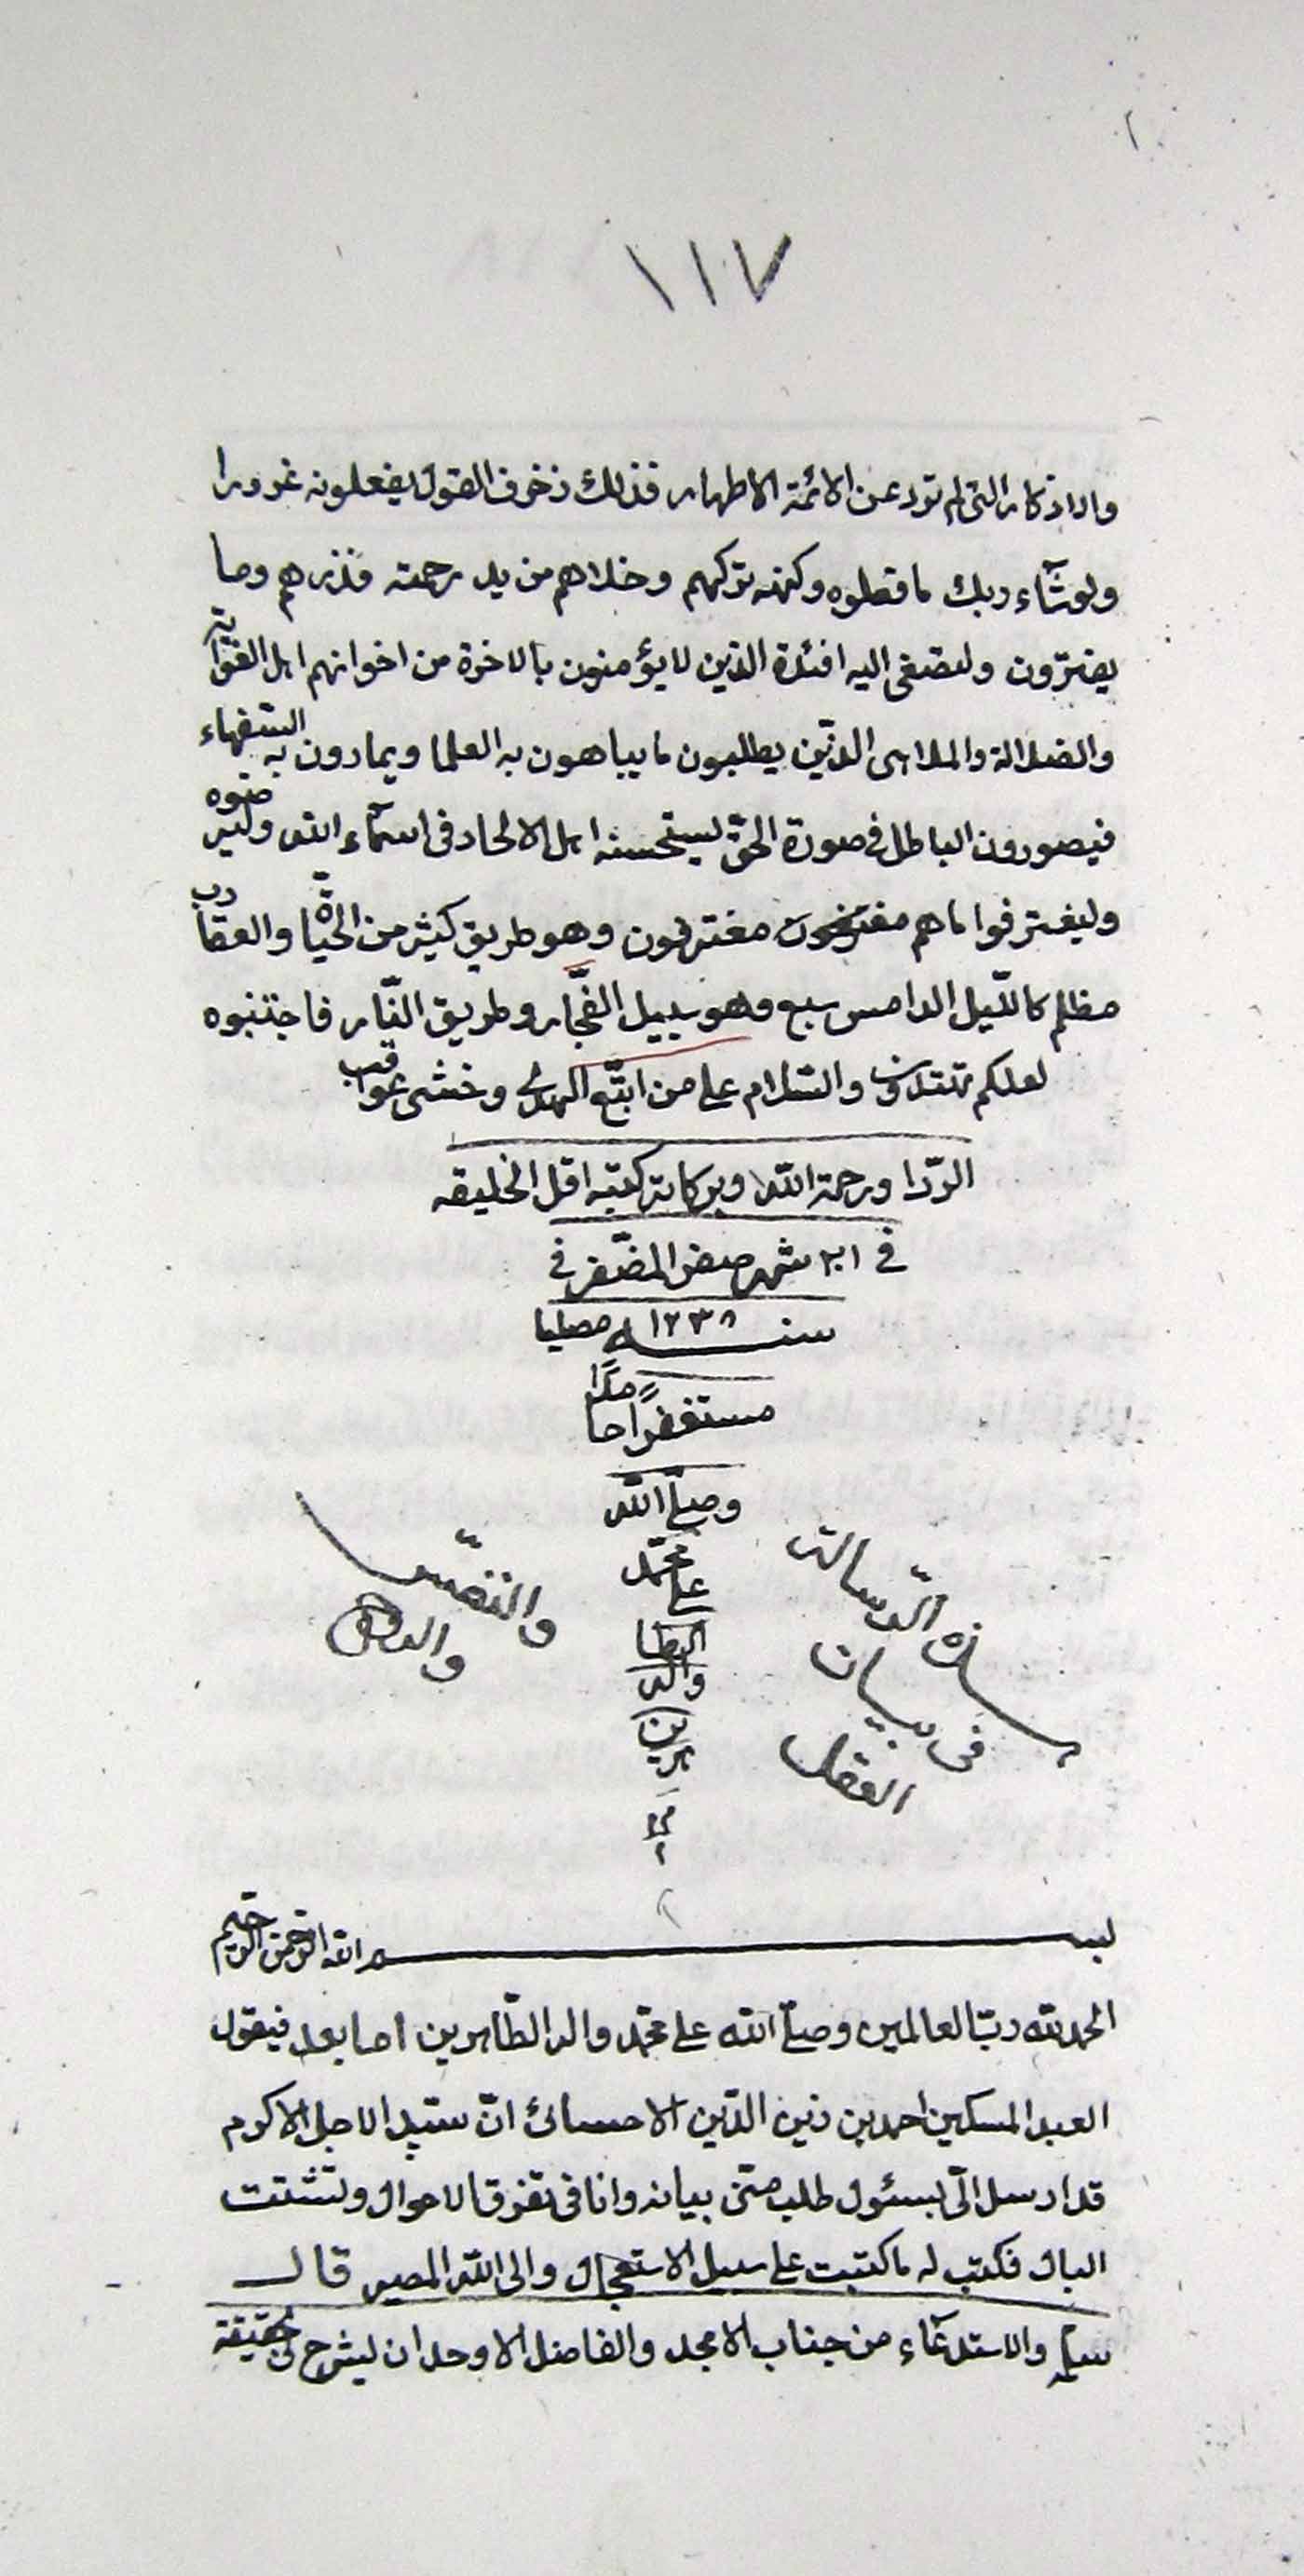 ١١٧
واراذكار التى لم ترد عن الائمة الاطهار فذلك زخرف القول يفعلونه غرورا
ولو شآء ربك ما فعلوه وكنه تركهم وخلاهم من يد رحمته فذرهم وما
يفترون ولتصغى اليه افئدة الذين لا يؤمنون بالاخرة من اخوانهم اهل الغواية
والضلالة والملاهى الذين يطلبون ما يباهون به العلما ويمارون به السفهاء
فيصورون الباطل فى صورة الحق ليستحسنه اهل الالحاد فى اسمآء الله وليرضوه
وليقترفوا ما هم مقترفون وهو طريق كثير من الحيّات والعقارب
مظلم كالليل الدامس سبع وهو سبيل الفجّار وطريق النّار فاجتنبوه
لعلكم والسّلام على من اتبّع الهدى وخشى عواقب
الرّدا ورحمة الله وبركاته كتبه اقل الخليقه
فى شهر صفر المضّفر فى
سنه ١٢٣٨ مصليا
مستغفرًا حامدًا
وصلّى الله
على محمّد
واله
الطا
هرين
هذه الرّسالة
فى بيان
العقل
والنفس
والروح
بسم الله الرّحمن الرّحيم
الحمد لله ربّ العالمين وصلّى الله على محمّد واله الطّاهرين اما بعد فيقول
العبد المسكين احمد بن زين الدّين الاحسائى انّ سيّد الاجل الاكرم
قد ارسل الىّ بسئول طلب منّى بيانه وانا فى تفرق الاحوال وتشتت
البال فكتب له ما كتبت على سبيل الاستعجال والى الله المصير قال
سلمه والاستدعآء من جناب الامجد والفاضل الاوحد ان ليشرح لى حقيقة